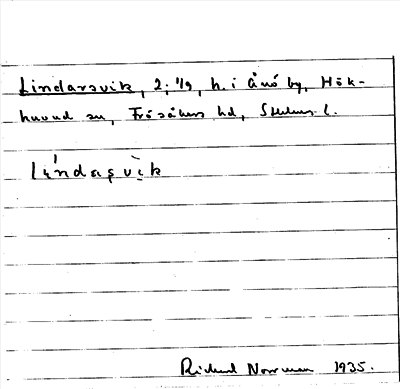 Lindarsvik, 2; 1/9, h. i Ånö by, Hök-
huvud sn, Frösåkers hd, Sthlms l.
Lindasvik
Rickard Norrman 1935.